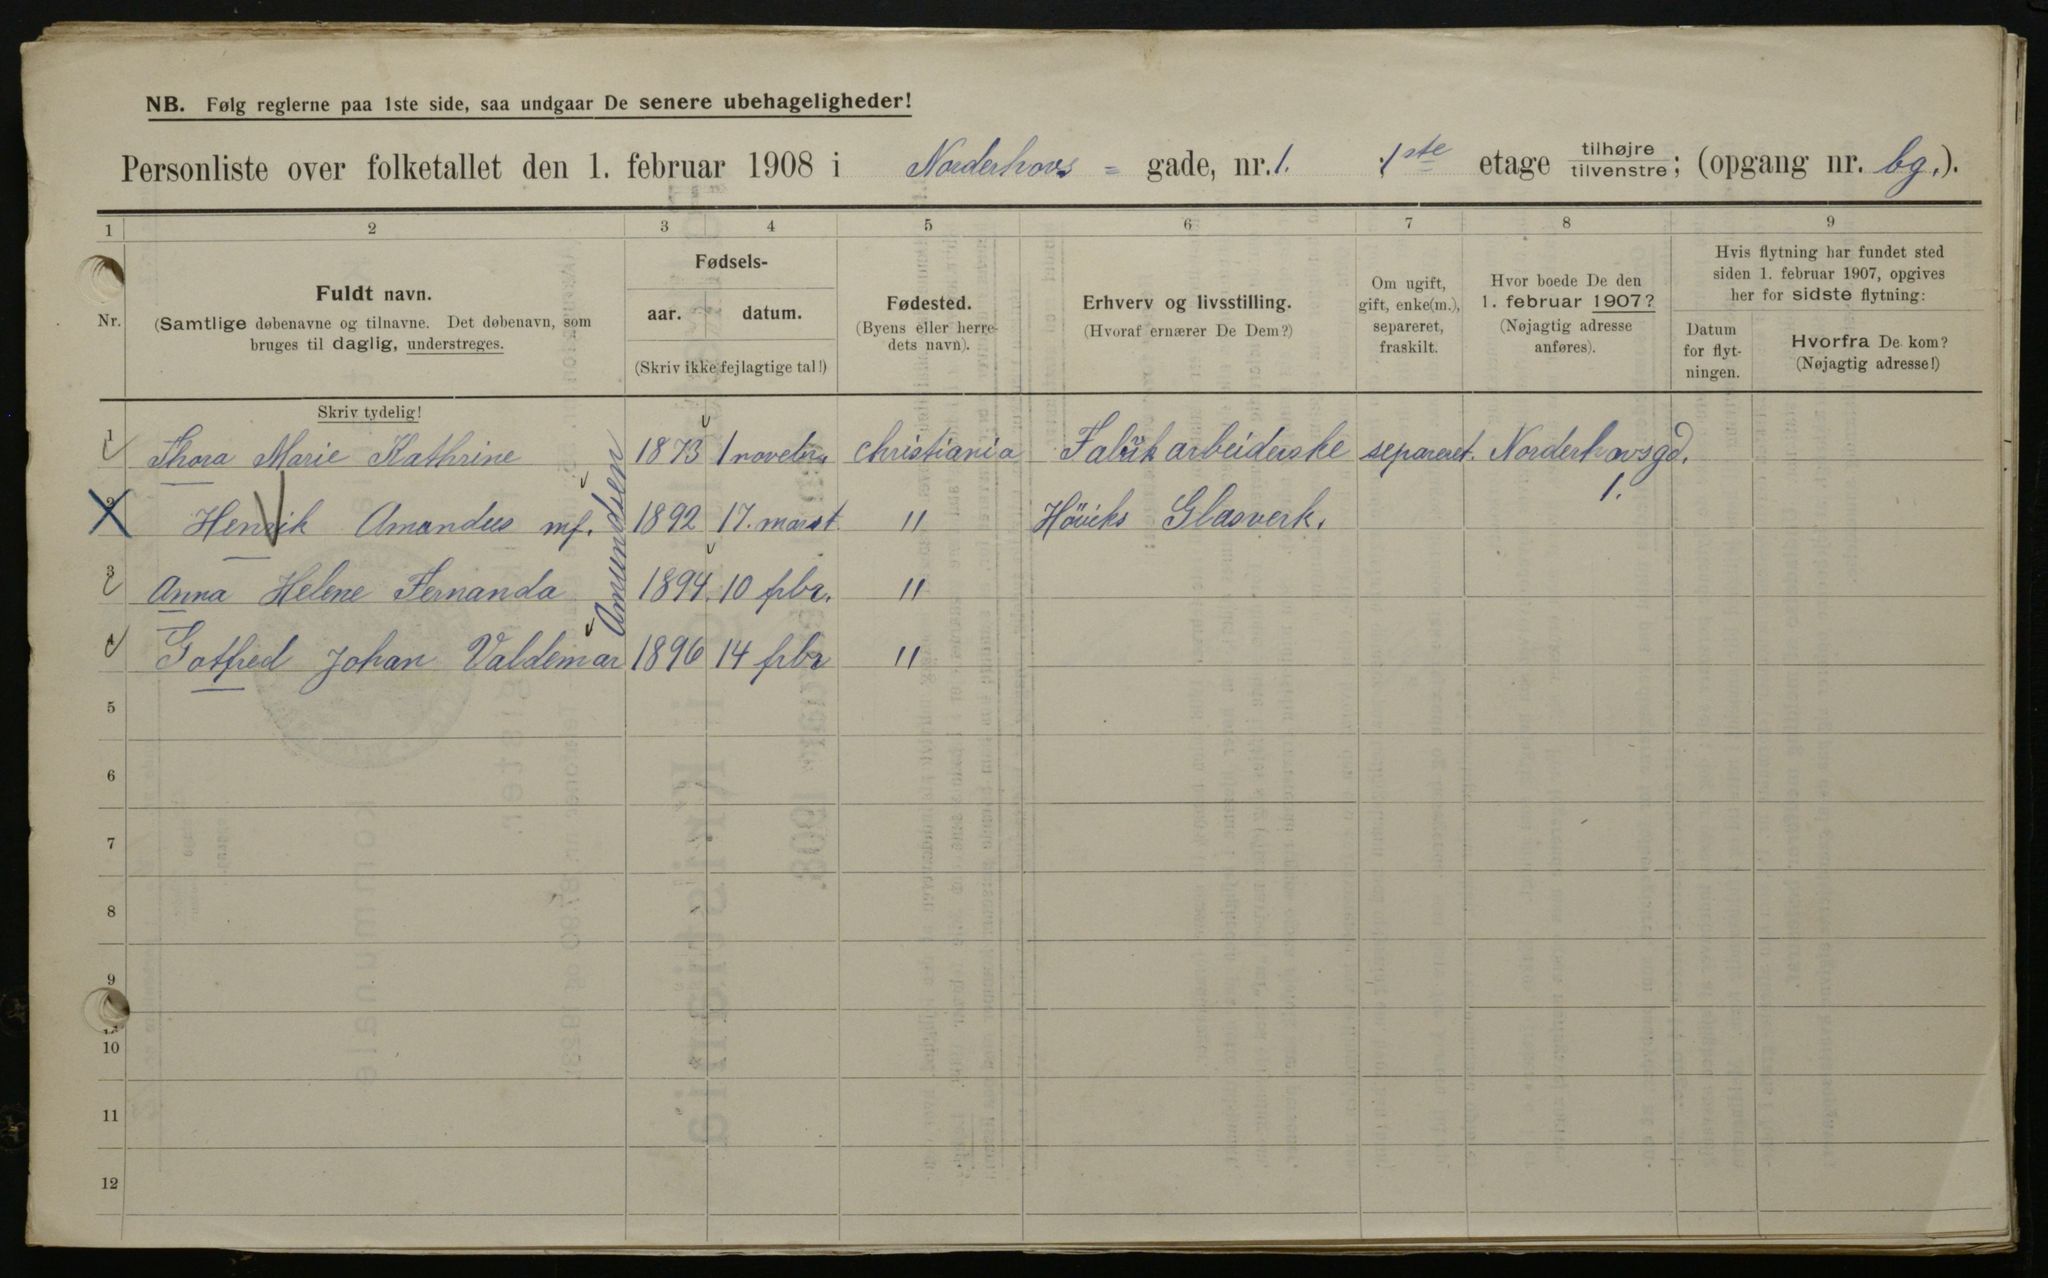 NB. Følg reglerne paa 1ste side, saa undgaar De senere ubehageligheder!
Personliste over folketallet den 1. februar 1908 i Norderhovs = gade, nr. 1. 1ste etage tilhøjre tilvenstre; (opgang nr. bg.).
1 2 3 4 5 6 7 8 9
Nr.
Fuldt navn.
(Samtlige døbenavne og tilnavne. Det døbenavn, som
bruges til daglig, understreges.
Skriv tydelig!
Fødsels-
aar. datum.
(Skriv ikke fejlagtige tal!)
Fødested.
(Byens eller herre-
dets navn).
Erhverv og livsstilling.
(Hvoraf ernærer De Dem?)
Om ugift,
gift, enke(m.),
separeret,
fraskilt.
Hvor boede De den
1. februar 1907?
(Nøjagtig adresse
anføres).
Hvis flytning har fundet sted
siden 1. februar 1907, opgives
her for sidste flytning:
Datum
for flyt-
ningen.
Hvorfra De kom?
(Nøjagtig adresse!)
1 Thora Marie Kathrine 1873 1 novebr. Christiania Fabrikarbeiderske separeret. Norderhovsgd. 1.
2 Henrik Amandus mf. 1892 17. marst " Höviks Glasverk.
3 Anna Helene Fernanda 1894. 10 frbr. "
4 Gotfred Johan Valdemar 1896 14 frbr "
Amundsen
5
6
7
8
9
10
11
12